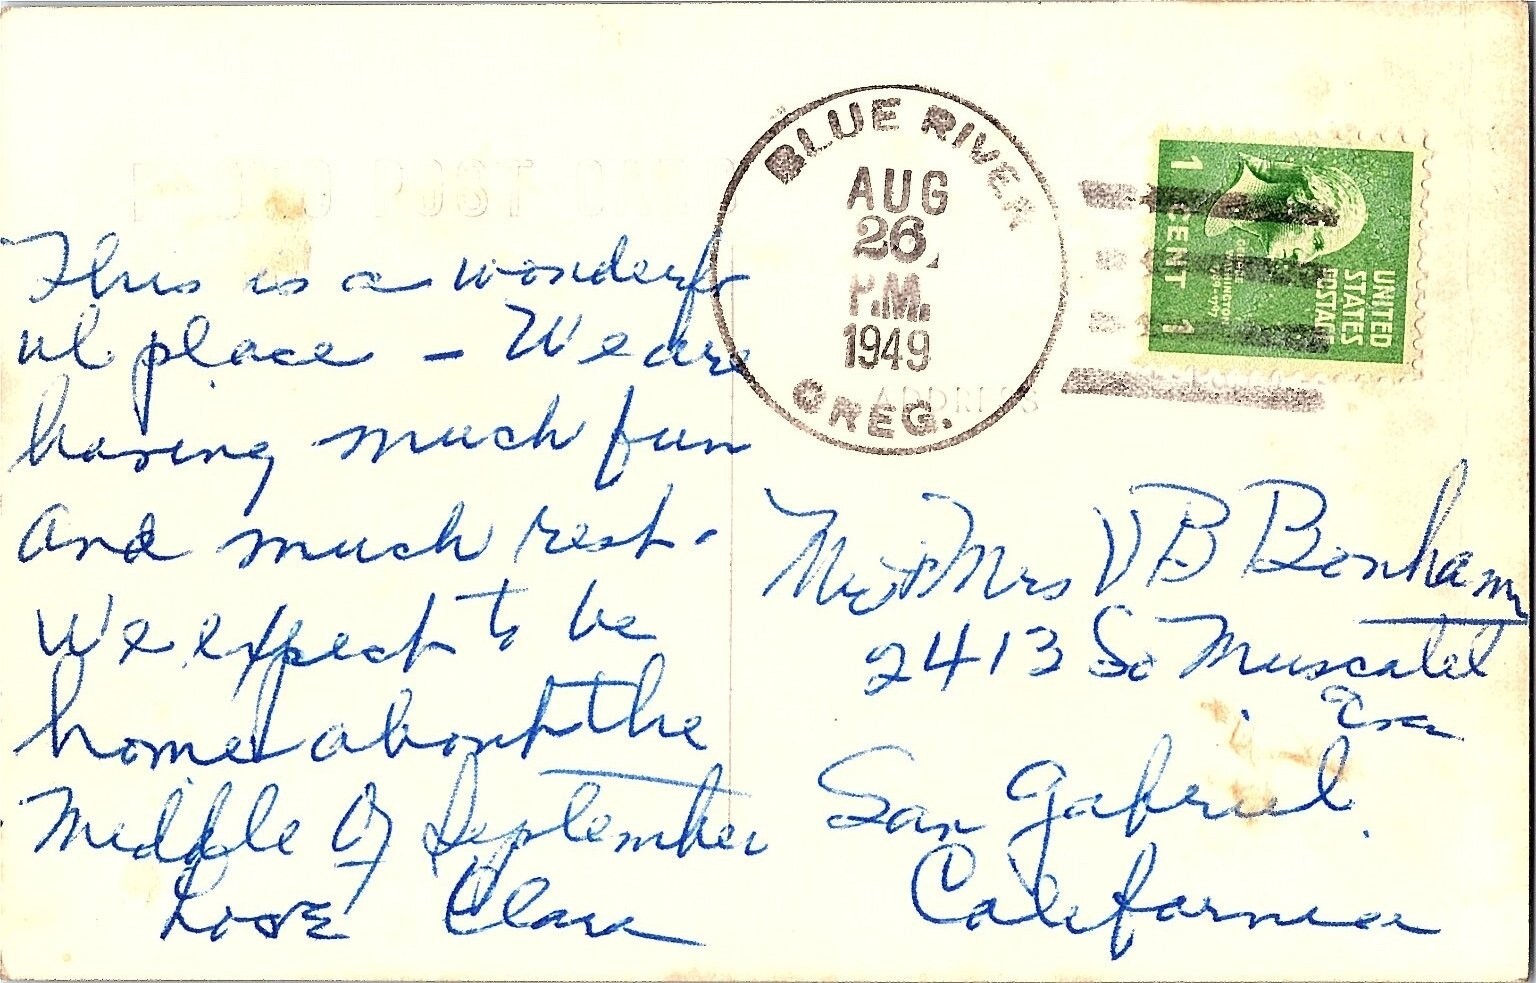 PHOTO POST CARD
BLUE RIVER
AUG
26
P.M.
1949
OREG.
1 CENT 1
UNITED
STATES
POSTAGE
ADDRESS
This is a wonderf
ul place – We are
having much fun
and much rest.
We expect to be
home about the
Middle of September
Love Clara
Mr + Mrs V B Bonham
2413 So Muscatel
San Gabriel.
California